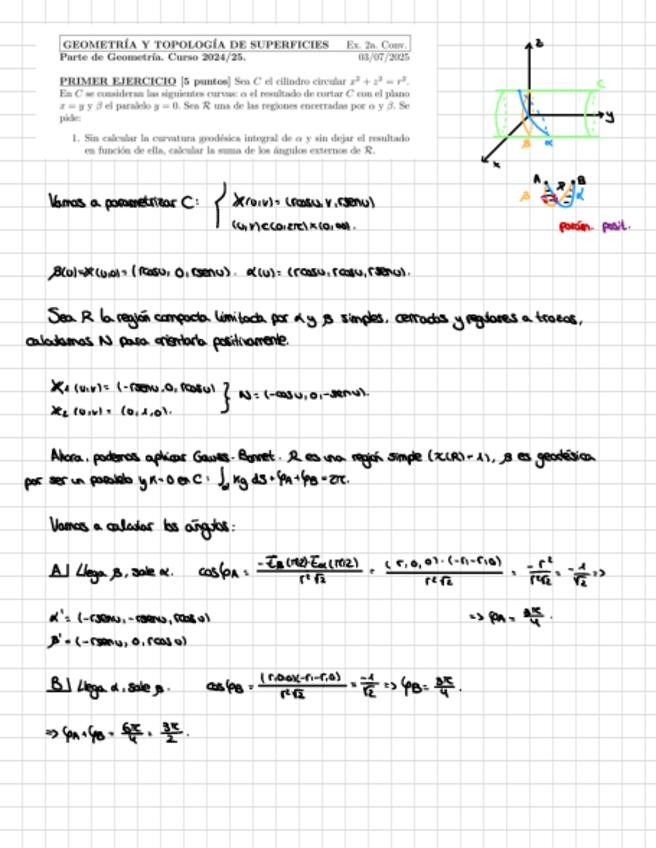 GEOMETRÍA Y TOPOLOGÍA DE SUPERFICIES Ex. 2a. Conv.
Parte de Geometría. Curso 2024/25. 03/07/2025
PRIMER EJERCICIO [5 puntos] Sea C el cilindro circular x² + z² = r².
En C se consideran las siguientes curvas: α el resultado de cortar C con el plano
x = y y β el paralelo y = 0. Sea R una de las regiones encerradas por α y β. Se
pide:
1. Sin calcular la curvatura geodésica integral de α y sin dejar el resultado
en función de ella, calcular la suma de los ángulos externos de R.
z
C
y
β α
x
A R B
β α
parám. posit.
Vamos a parametrizar C: { X(u,v) = (rcosu, v, rsenu)
(u,v) ∈ (0,2π)×(0,∞).
β(u)=X(u,0)= (rcosu, 0, rsenu). α(u)= (rcosu, rcosu, rsenu).
Sea R la región compacta limitada por α y β simples, cerrados y regulares a trozos,
calculamos N para orientarla positivamente.
X₁(u,v)= (-rsenu, 0, rcosu)
X₂(u,v)= (0,1,0). } N = (-cosu, 0, -senu).
Ahora, podemos aplicar Gauss-Bonnet. R es una región simple (χ(R)=1), β es geodésica
por ser un paralelo y K=0 en C: ∫α Kg dS + φA + φB = 2π.
Vamos a calcular los ángulos:
A] Llega β, sale α. cosφA = -Tβ(π/2)·Tα(π/2) / r²√2 = (r,0,0)·(-r,-r,0) / r²√2 = -r²/r²√2 = -1/√2 =>
α' = (-rsenu, -rsenu, rcosu) => φA = 3π/4.
β' = (-rsenu, 0, rcosu)
B] Llega α, sale β. cosφB = (r,0,0)(-r,-r,0) / r²√2 = -1/√2 => φB = 3π/4.
=> φA + φB = 6π/4 = 3π/2.